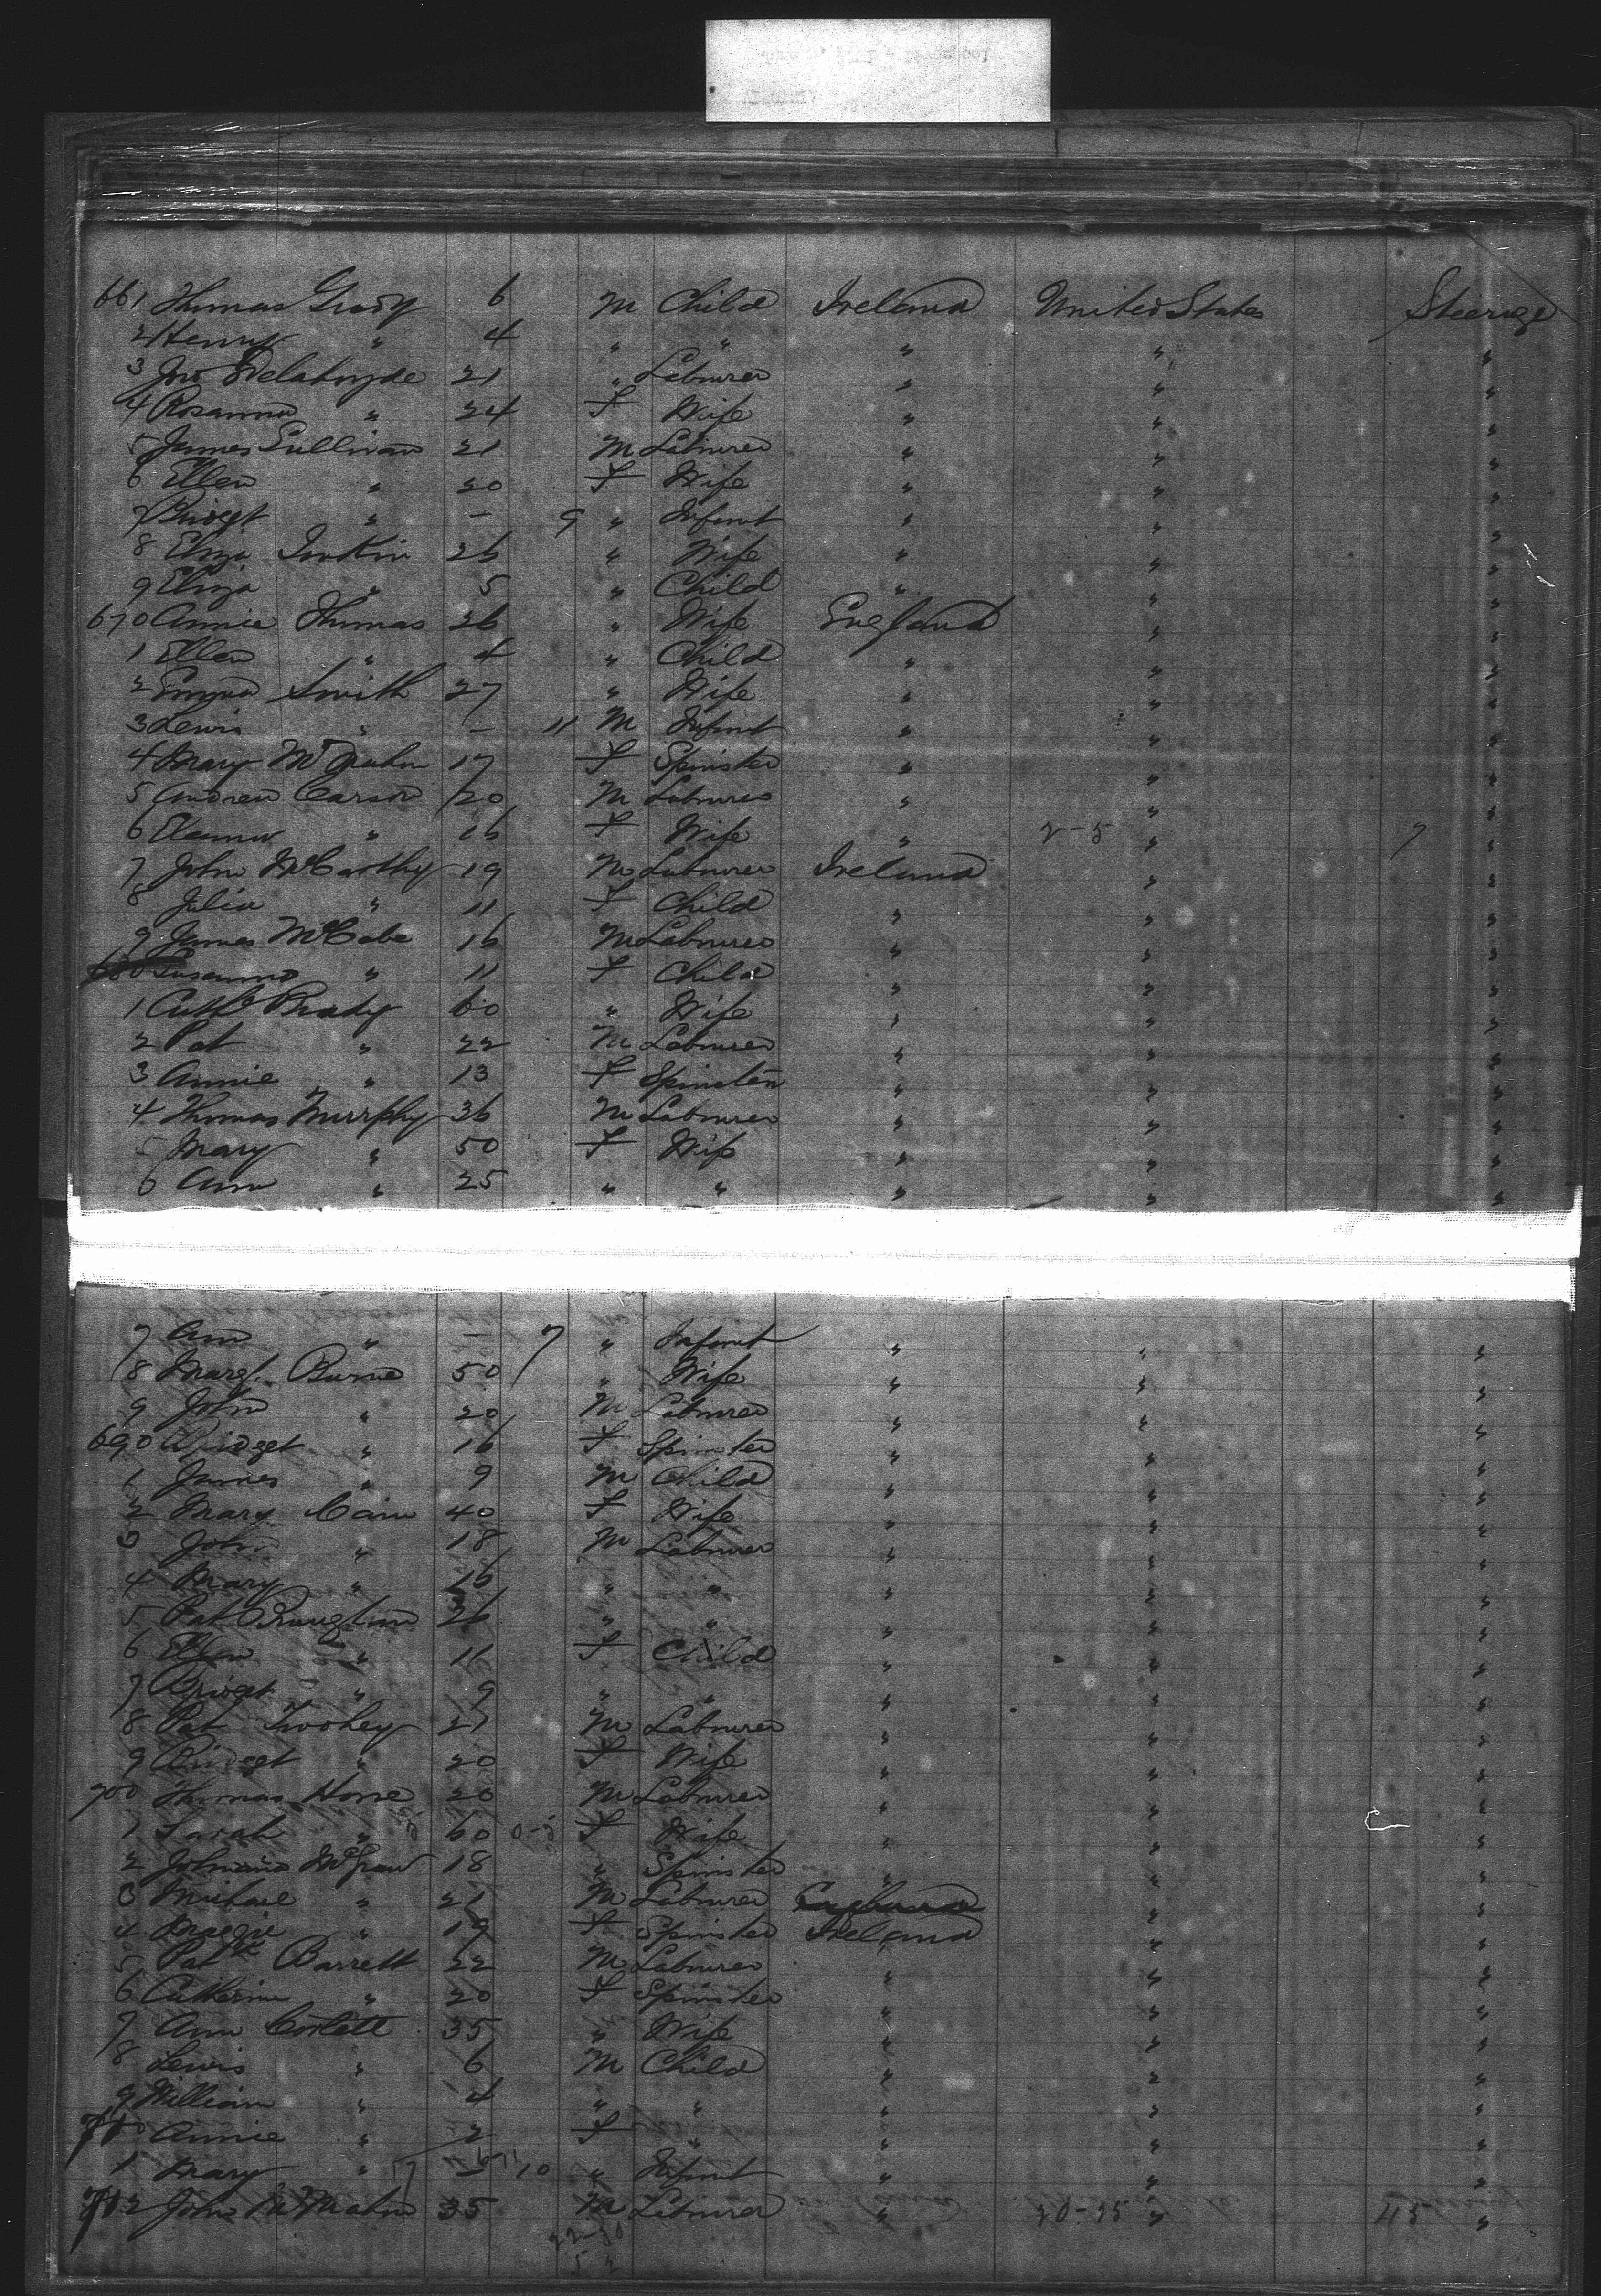 661 Thomas Grady 6 M Child Ireland United States Steerage
2 Henry " 4 " " " " "
3 Delahoyde 21 " Labourer " " "
4 Rosanna " 24 F Wife " " "
5 James Sullivan 21 M Labourer " " "
6 Ellen " 20 F Wife " " "
7 Bridget " — 9 " Infant " " "
8 Eliza 26 " Wife " " "
9 Eliza " 5 " Child " " "
670 Annie Thomas 26 " Wife England " "
1 Ellen " 4 " Child " " "
2 Emma Smith 27 " Wife " " "
3 Lewis " — 11 M Infant " " "
4 Mary 17 F Spinster " " "
5 Andrew Carson 20 M Labourer " " "
6 Eleanor " 16 F Wife " " "
7 John McCarthy 19 M Labourer Ireland " "
8 Julia " 11 F Child " " "
9 James McCabe 16 M Labourer " " "
680 Susanna " 11 F Child " " "
1 Cathe Brady 60 " Wife " " "
2 Pat " 22 M Labourer " " "
3 Annie " 13 F Spinster " " "
4 Thomas Murphy 36 M Labourer " " "
5 Mary " 50 F Wife " " "
6 Ann " 25 " " " " "
7 Ann " — 7 " Infant " " "
8 Margt. Burne 50 " Wife " " "
9 John " 20 M Labourer " " "
690 Bridget " 16 F Spinster " " "
1 James " 9 M Child " " "
2 Mary Cain 40 F Wife " " "
3 John " 18 M Labourer " " "
4 Mary " 16 " " " " "
5 Pat 26 " " " " "
6 Ellen " 11 F Child " " "
7 Bridget " 9 " " " " "
8 Pat Twohey 21 M Labourer " " "
9 Bridget " 20 F Wife " " "
700 Thomas Horne 20 M Labourer " " "
1 Sarah " 60 F Wife " " "
2 Johanna 18 " Spinster " " "
3 Michael " 21 M Labourer " "
4 Maggie " 19 F Spinster Ireland " "
5 Patk Barrett 22 M Labourer " " "
6 Catherine " 20 F Spinster " " "
7 Ann Corlett 35 " Wife " " "
8 Lewis " 6 M Child " " "
9 William " 4 " " " " "
710 Annie " 2 F " " " "
1 Mary " — 10 " Infant " " "
712 John McMahon 35 M Labourer " " "